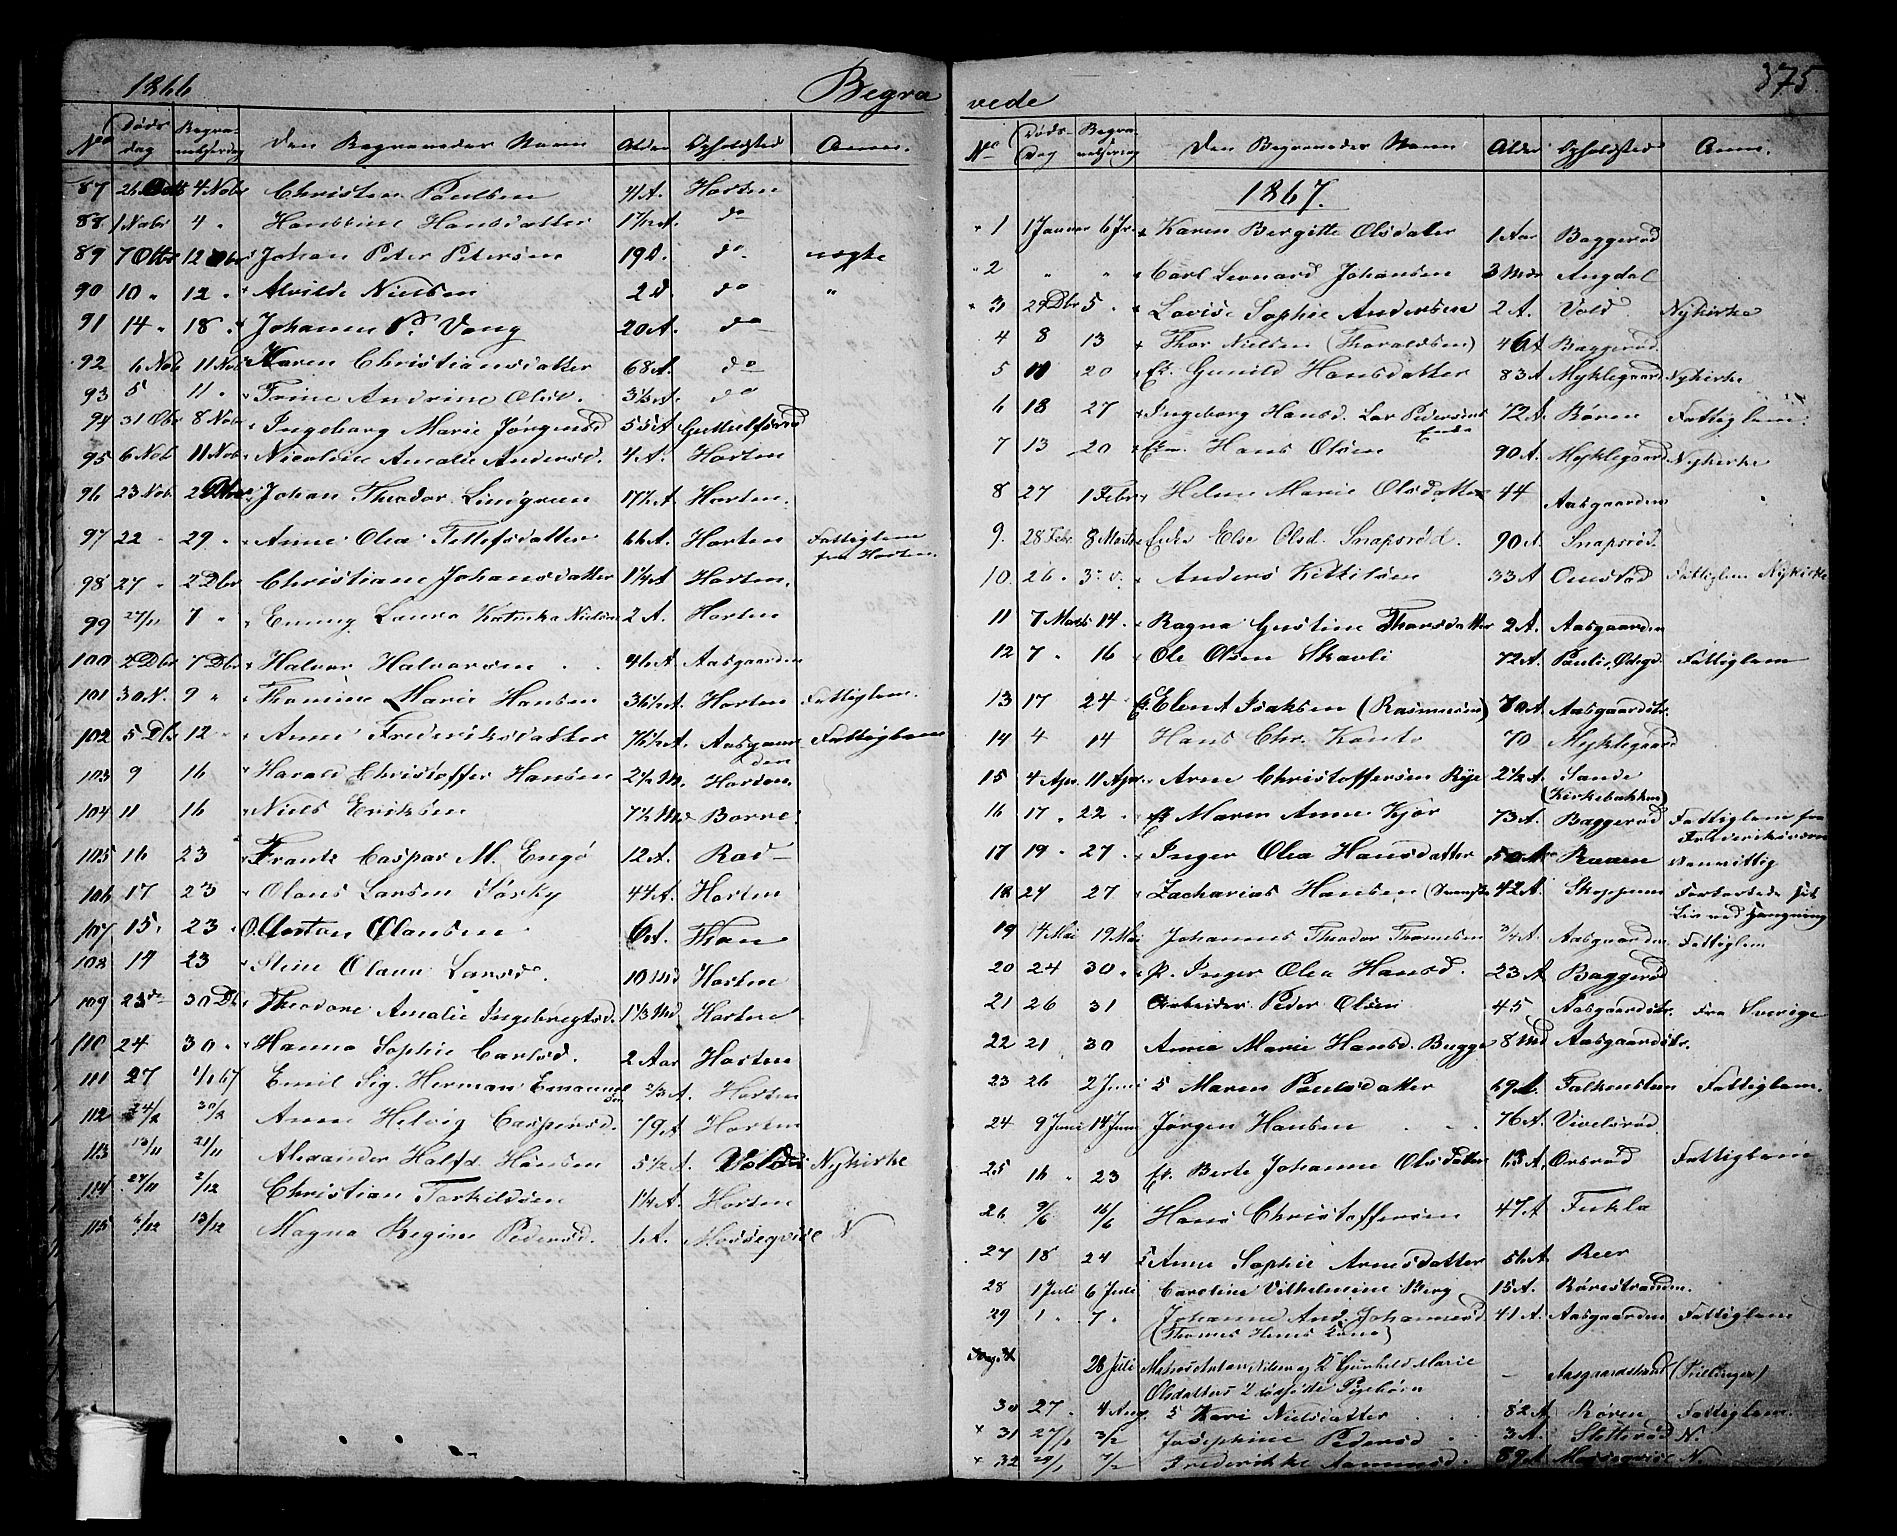 1866 Begra
No Døds dag Begra- velsesdag Den Begravedes Navn Alder Opholdsted Anm.
87 26 4 Nobr Christen Paulsen 41 A. Horten
88 1 Nobr 4 " Hansine Hansdatter 1 7/12 A. do
89 7 12 Johan Peter Petersen 19 D. do nøgte
90 10 " 12 " Alvilde Nielsen 2 D. do "
91 14 " 18 " Johanne P. Vang 20 A. do
92 6 Nob 11 Nob Karen Christiansdatter 68 A. do
93 5 11 " Trine Andrine Olsd. 3½ A. do
94 31 Obr 8 Nob Ingeborg Marie Jørgensd 55 A
95 6 Nob 11 Nob Nicoline Amalie Andersd. 4 A. Horten
96 23 Nob. 2 Johan Theodor Lindgren 17½ A Horten.
97 22 " 29 " Anne Olea Tellefsdatter 66 A. Horten Fattiglem fra Horten.
98 27 " 2 Dbr Christiane Johansdatter 1¼ A Horten.
99 27/11 7 " Emmy Laura Katinka Nielsen 2 A. Horten
100 2 Dbr 7 Dbr Halvor Halvorsen 46 A. Aasgaarden
101 30 N. 9 " Thomine Marie Hansen 36½ A. Horten Fattiglem.
102 5 Dbr 12 " Anne Frederiksdatter 76½ A. Aasgaarden Fattiglem
103 9 16 Harald Christoffer Hansen 2½ M. Horten.
104 11 16 Niels Eriksen 7½ Md Borre.
105 16 23 Frants Caspar M. Engø 12 A. Rad
106 17 23 Olaus Larsen Sørby 44 A. Horten
107 15. 23 . O. Anton Olausen 6 A. Thon
108 19 23 Stine Olava Larsd. 10 Md Horten
109 23 30 Db Theodore Amalie Ingebregtsd. 1⅓ Md Horten
110 24 30 " Hanna Sophie Carlsd. 2 Aar Horten
111 27 1/1 67 Emil Sig. Herman Emanuelsen 2/3 A. Horten
112 24/12 30/12 Anne Helvig Caspersd. 79 A Horten
113 13/11 21/11 Alexander Halfd. Hansen 5½ A. Vold Nykirke
114 27/11 2/12 Christian Torkildsen 1¼ A. Horten
115 6/12 13/12 Magna Regine Pedersd. 1 A. N
375.
vede
No Døds- Dag Begra- velsesdag Den Begravedes Navn Alder Opholdsted Anm.
1867.
1 1 Januar 6 Jr. Karen Bergitte Olsdatter 1 Aar Baggerød
2 " " Carl Leonard Johansen 3 Mdr Angdal
3 29 Dbr 5 . Lovise Sophie Andersen 2 A. Vold Nykirke
4 8 13 Thor Nielsen (Thoraldsen) 46 A Baggerød.
5 11 20 Ek. Gunild Hansdatter 83 A Myklegaard Nykirke
6 18 27 Ingeborg Hansd. Lar Pedersens Enke 72 A. Røren Fattiglem.
7 13 20 Ekm. Hans Olsen 90 A. Myklegaard Nykirke
8 27 1 Febr Helene Marie Olsdatter 44 Aasgaarden
9. 28 Febr 8 Marts Enke Else Olsd. Snapsrød. 90 A. Snapsrød.
10. 26 " 3 Anders Kittilsen 33 A Omsrød Fattiglem Nykirke
11 7 Marts 14. Ragna Gustine Thorsdatter 2 A. Aasgaarden
12 7 " 16 Ole Olsen Skavli 72 A. Fattiglem
13 17 24 Elen A Isaksen (Rasmussen) 70 A. Aasgaardstr.
14 4 14 Hans Chr. Konto 70 Myklegaard
15 4 Apr. 11 Apr. Arne Christoffersen Rye 2½ A. Sande (Kirkebakken)
16 17 . 22 . Maren Anne Kjør 73 A. Baggerød Fattiglem fra Frederiksværn
17 19 " 27 . Inger Olea Hansdatter 50 A Raaen vanvittig
18 24 27 Zacharias Hansen (Svenske 42 A. Skoppum Forkortede sit Liv ved Hængning
19 14 Mai 19 Mai Johannes Theodor Thomesen ¾ A. Aasgaarden Fattiglem
20 24 30 . p. Inger Olea Hansd. 23 A Baggerød
21 26 31 Arbeider Peder Olsen 45 Aasgaardstr. Fra Sverige
22 21 30 Anna Marie Hansd. Bugge 8 Md Aasgaardstr.
23 26 2 Juni Maren Paulsdatter 69 A. Falkensteen Fattiglem.
24 9 Juni 14 Juni Jørgen Hansen 76 A. Vivelsrød.
25 16 " 23 Ek. Berte Johanne Olsdatter A. Orerød Fattiglem
26 9/6 16/6 Hans Christoffersen 47 A
27 18 24 Anne Sophie Arnesdatter 56 A. Reer
28 1 Juli 6 Juli Caroline Vilhelmine Berg 15 A. Rørestranden.
29 1 . 7 . Johanne And. Johannesd. 41 A. Aasgaarden Fattiglem
(Thomas Kone)
28 Juli Matros Anton Nilsen og P. Gunhild Marie Aasgaardstrand (Tvillinger)
Olsdatters 2 dødfødte Pigebørn
30 27 . 4 Aug. Kari Nielsdatter 82 A. Røren Fattiglem.
31 27/1 3/2 Josephine Pedersd 3 A. N.
32 29/1 7/2 Frederikke 89 A N.